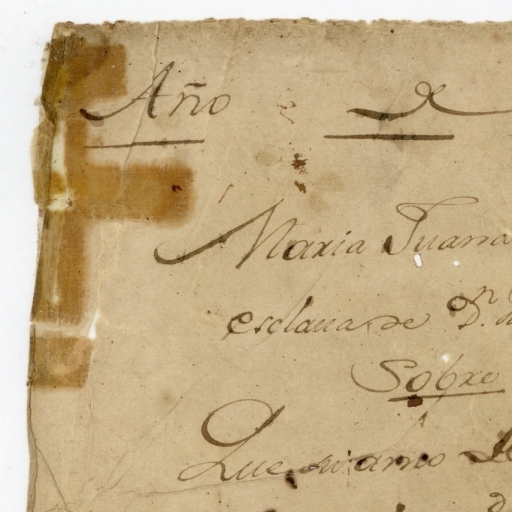 Año de
Maria Juana
esclaua de Dn.
Sobre
Que su amo